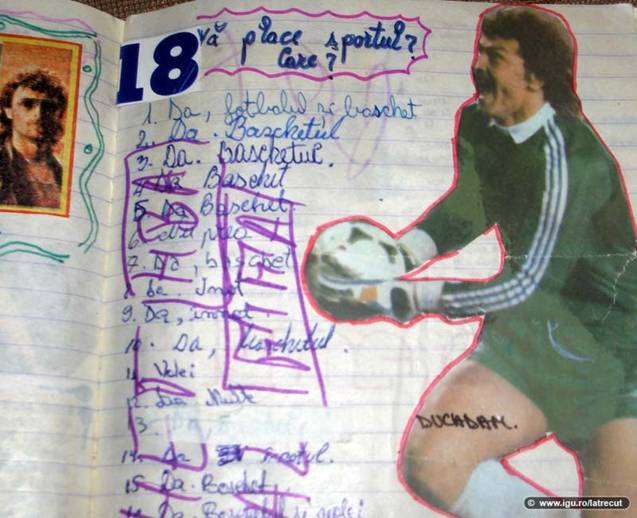 18
Vă place sportul?
Care?
1. Da, fotbalul și baschet
2. Da. Baschetul
3. Da. Baschetul.
4. Da Baschet
5. Da Baschet.
6.
7. Da, baschet
8. Da. Înot
9. Da, înnot.
10. Da, baschetul.
11. Volei
12. Da Multe
13.
14. Da înotul.
15. Da. Baschet
16. Da. Baschetul și volei
DUCADAM.
© www.igu.ro/latrecut